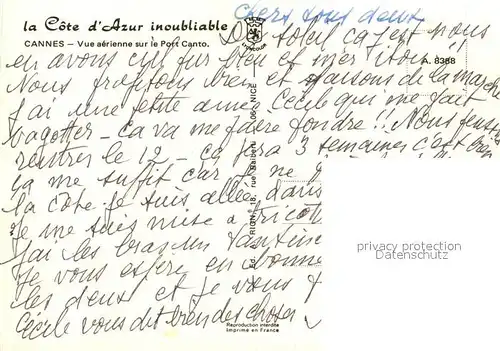 la Côte d'Azur inoubliable
CANNES – Vue aérienne sur le Port Canto.
A. 8388
Chers tous deux
Du soleil ça c'est nous
en avons eu sur bleu et mer itou.
Nous profitons bien et faisons de la marche
J'ai une petite amie Cécile qui me fait
vagotter – ca va me faire fondre !! Nous pensons
rentrer le 12 – ça fera 3 semaines c'est bien
ça me suffit car je ne
la côte je suis allée dans
je me suis mise a tricoter
j'ai les bras un
Je vous espère en bonne
les deux et je vous
Cécile vous dit bien des choses
Ed. A. RION, 18, rue Dalberti, 06 - NICE
Reproduction interdite
Imprimé en France
privacy protection
www.ansichtskartenversand.com